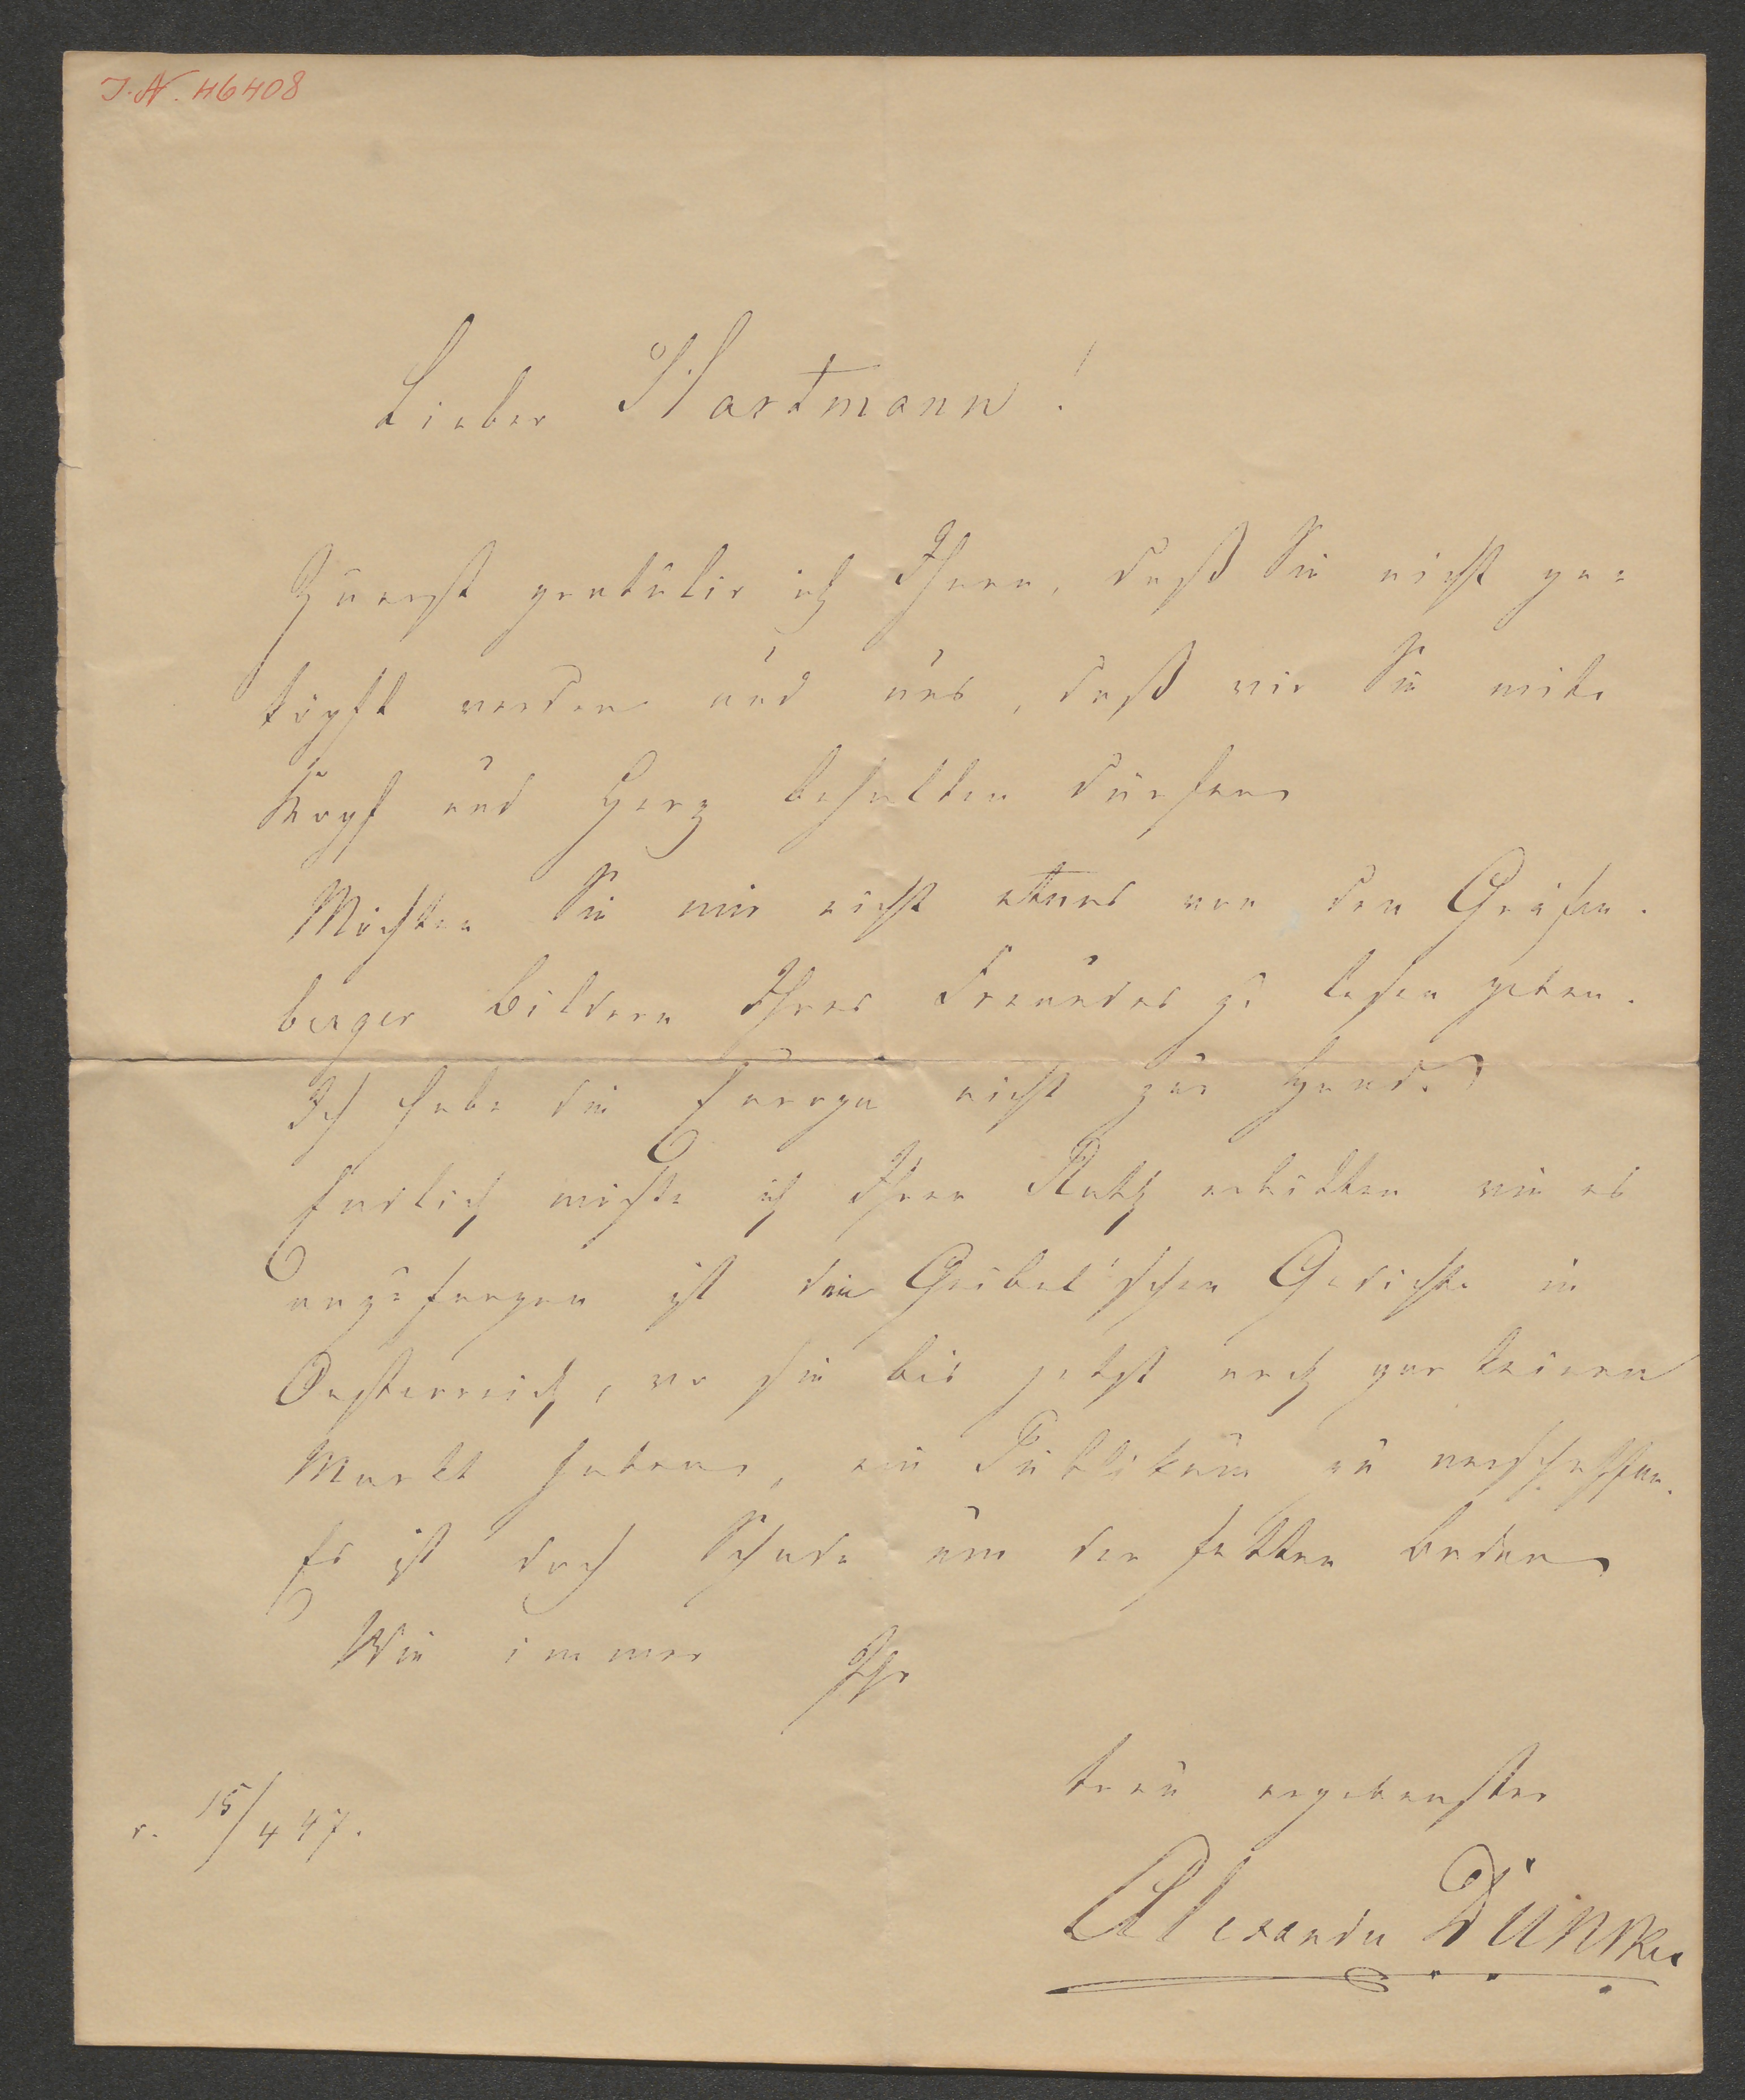 I. N. 46408
Lieber Hartmann!
Zuerst gratulir ich Ihnen, daß Sie nicht ge=
köpft werden und uns, daß wir Sie mit
Kopf und Herz behalten dürfen
Möchten Sie mir nicht etwas von den Gräfen-
berger Bildern Ihres Freundes zu lesen geben.
Ich habe die Europa nicht zur Hand.
Endlich möchte ich Ihren Rath erbitten wie es
anzufangen ist den Geibel'schen Gedichten in
Oesterreich, wo sie bis jetzt noch gar keinen
Markt haben, ein Publikum zu verschaffen.
Es ist doch Schade um den fetten Boden
Wie immer Ihr
treu ergebenster
15/4 47.
Alexander Dunker